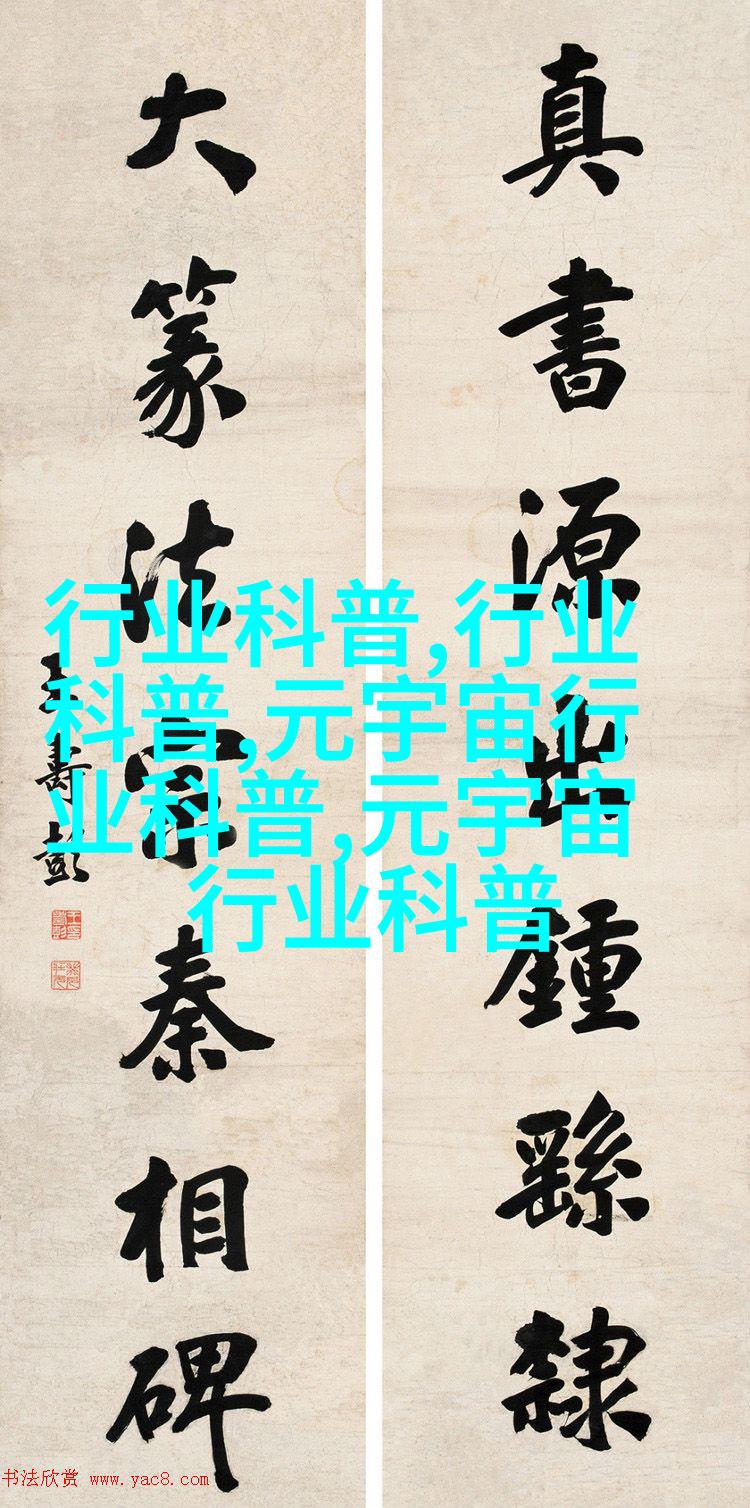 真書源出鍾繇隸
大篆法宗秦相碑
王壽彭
行业科普,行业
科普,元宇宙行
业科普,元宇宙
行业科普
书法欣赏 www.yac8.com